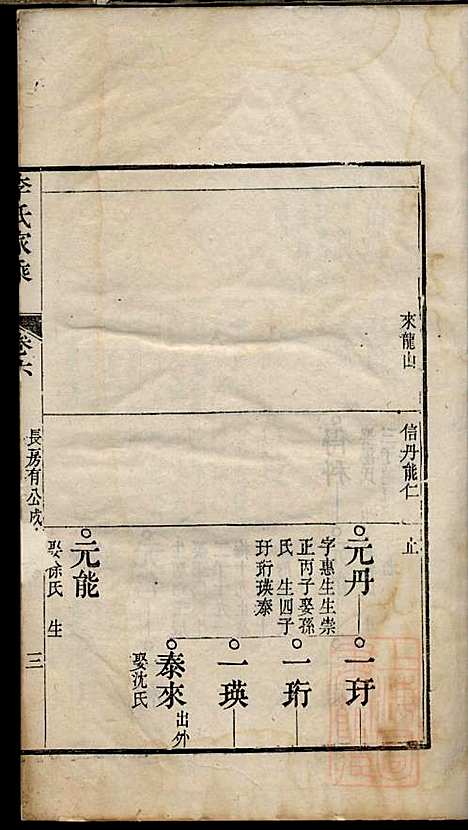 來龍山
信丹能仁
止
元丹
字惠生生崇
正丙子娶孫
氏 生四子
玗珩瑛泰
一玗
一珩
一瑛
泰來
出外
娶沈氏
元能
娶徐氏 生
李氏家乘
卷六
長房有公戍
三